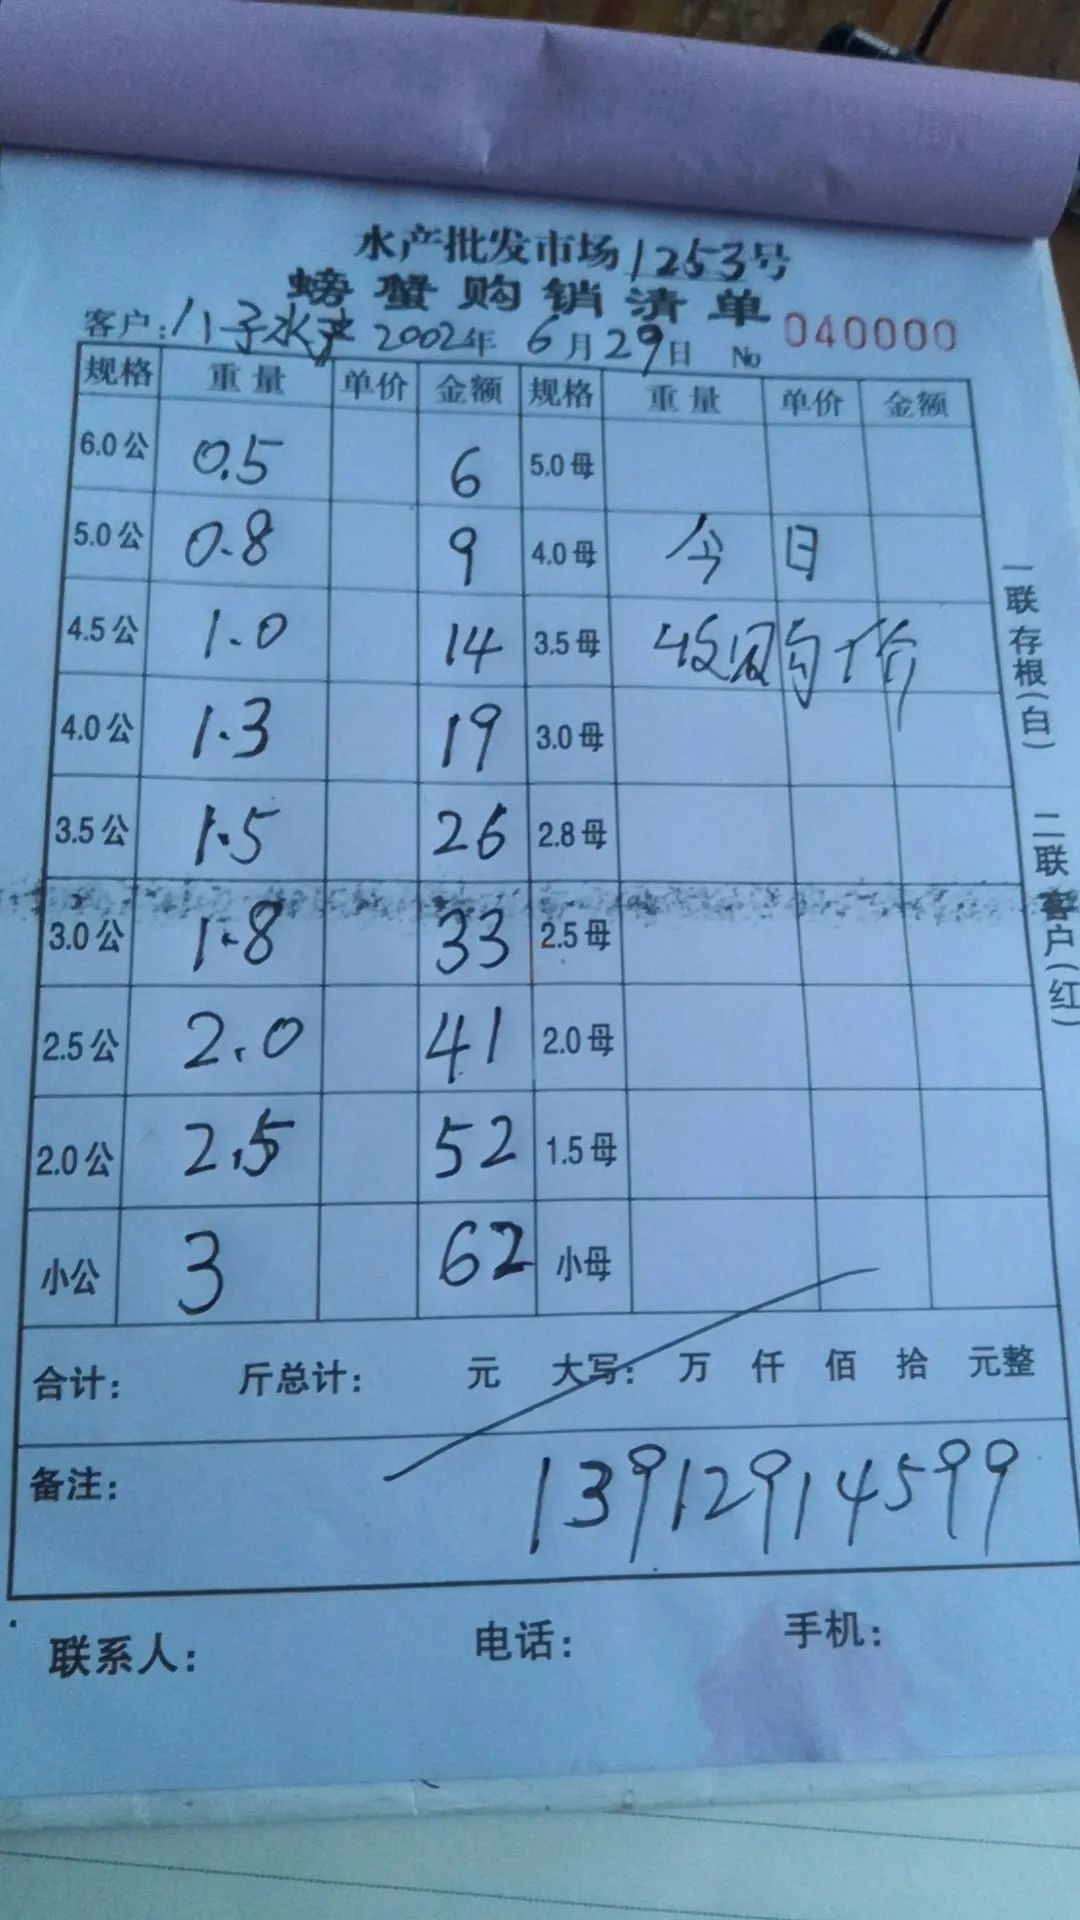 水产批发市场1253号
螃蟹购销清单
客户:八子水产 2002年 6月29日 No 040000
规格 重量 单价 金额 规格 重量 单价 金额
6.0公 0.5 6 5.0母
5.0公 0.8 9 4.0母 今日
4.5公 1.0 14 3.5母 收购价
4.0公 1.3 19 3.0母
3.5公 1.5 26 2.8母
3.0公 1.8 33 2.5母
2.5公 2.0 41 2.0母
2.0公 2.5 52 1.5母
小公 3 62 小母
合计: 斤总计: 元 大写: 万 仟 佰 拾 元整
备注: 13912914599
联系人: 电话: 手机:
一联存根(白)
二联客户(红)